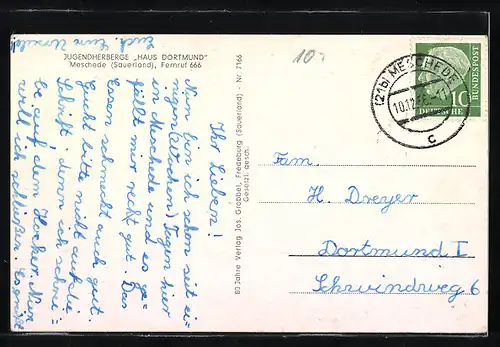 JUGENDHERBERGE „HAUS DORTMUND"
Meschede (Sauerland), Fernruf 666
Ihr Lieben!
Nun bin ich schon seit ei-
nigen Tagen hier
in Meschede und es ge-
fällt mir recht gut. Das
Essen schmeckt auch gut.
Guckt bitte nicht auf die
Schrift, denn ich schrei-
be auf dem Hocker. Nun
will ich schließen. Es grüßt
Euch Eure
80 Jahre Verlag Jos. Grobbel, Fredeburg (Sauerland) - Nr. 7166
Gesetzl. gesch.
10.-
(21b) MESCHEDE
c
10
DEUTSCHE
BUNDESPOST
Fam.
H. Dreyer
Dortmund I
Schwindweg 6